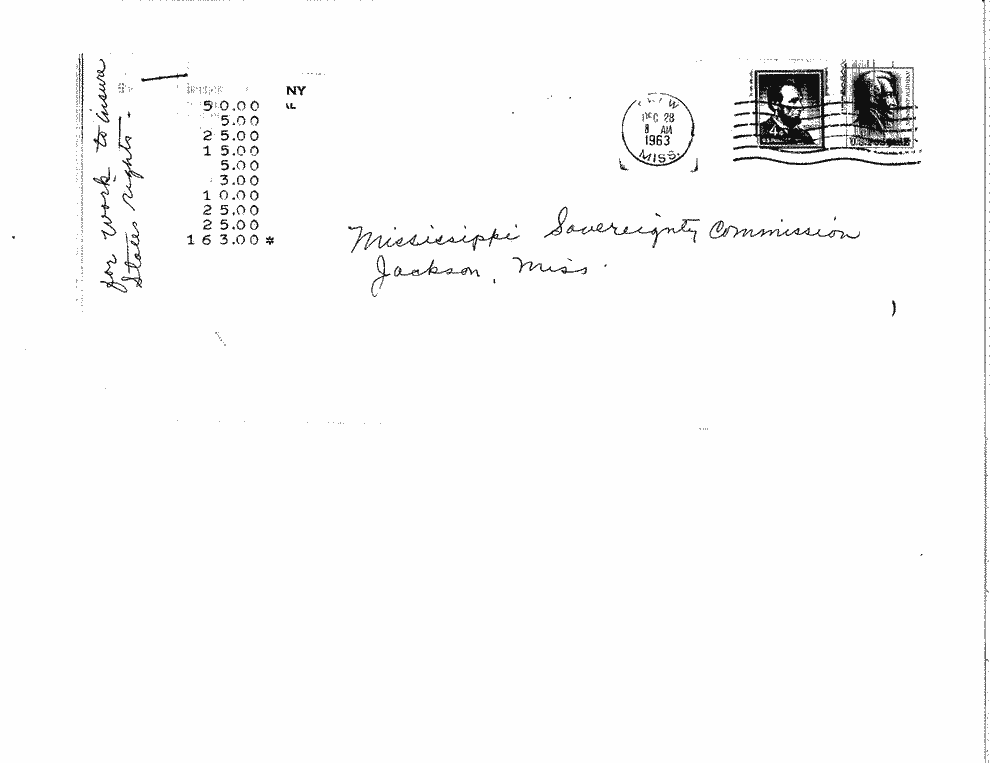 for work to insure
States rights -
NY
50.00
5.00
25.00
15.00
5.00
3.00
10.00
25.00
25.00
163.00 *
DEC 28
8 AM
1963
MISS.
U.S. POSTAGE
Mississippi Sovereignty Commission
Jackson, Miss.